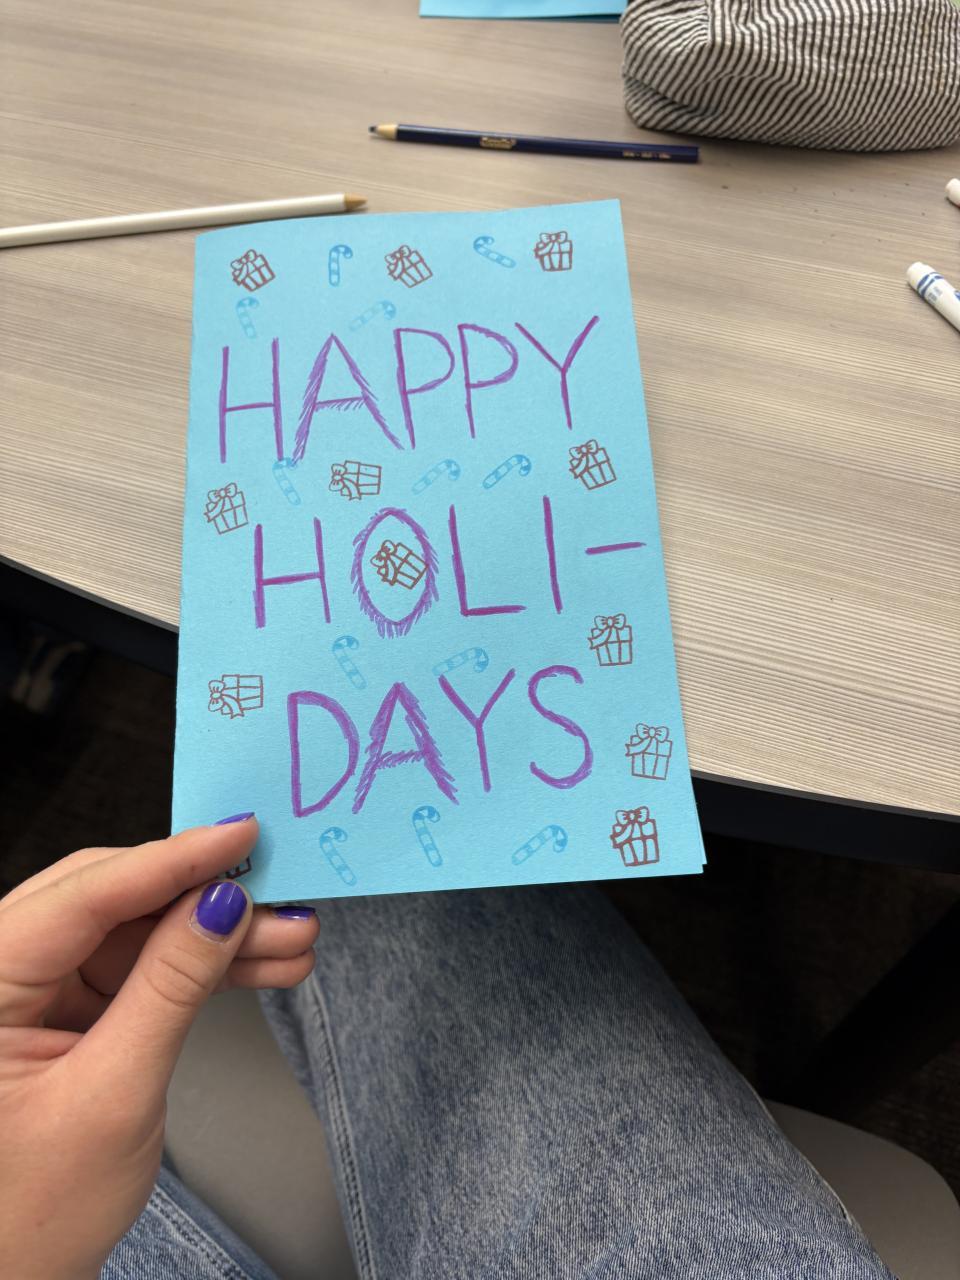 HAPPY
HOLI-
DAYS